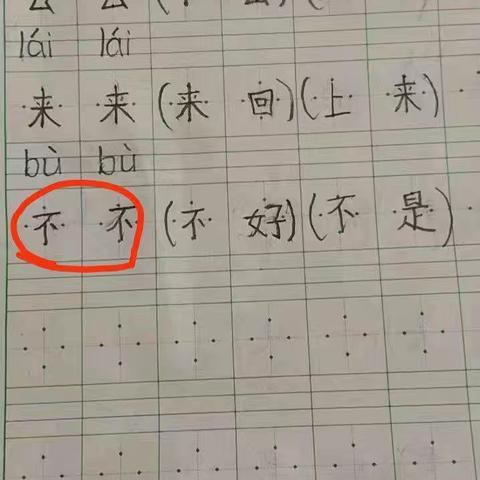 lái lái
来 来 (来 回)(上 来)
bù bù
不 不 (不 好)(不 是)